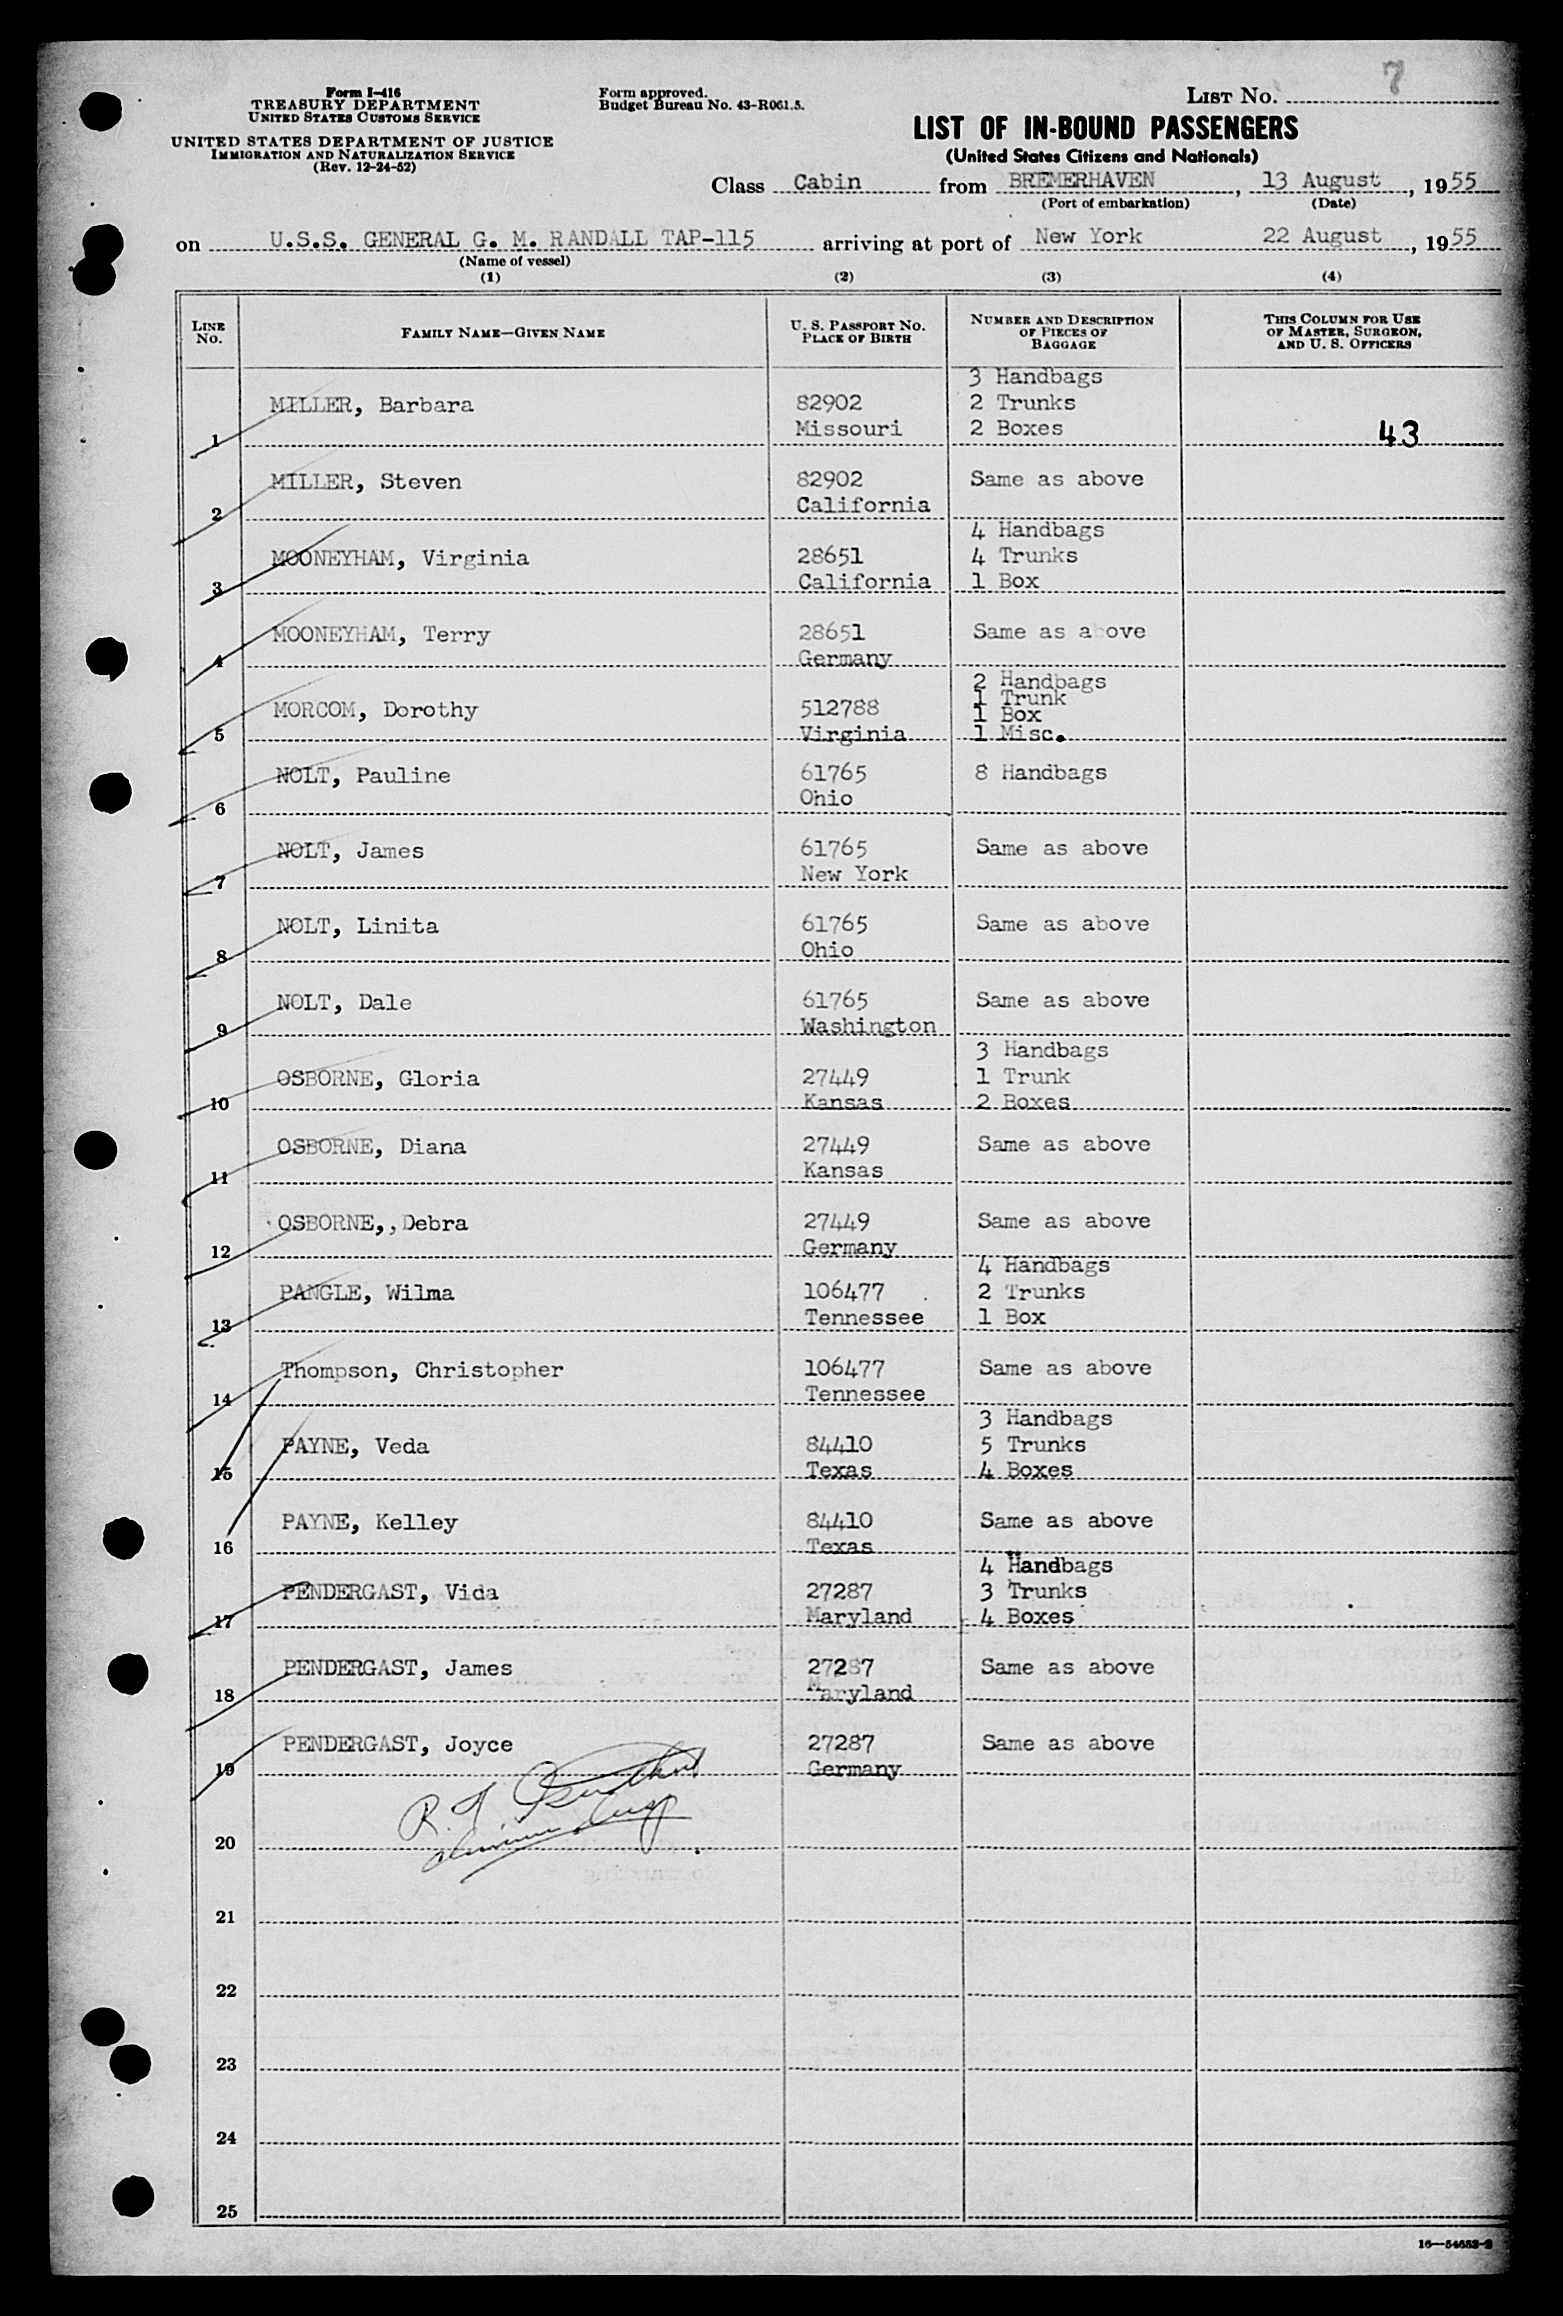 7
Form I-416
TREASURY DEPARTMENT
UNITED STATES CUSTOMS SERVICE
UNITED STATES DEPARTMENT OF JUSTICE
IMMIGRATION AND NATURALIZATION SERVICE
(Rev. 12-24-52)
Form approved.
Budget Bureau No. 43-R061.5.
LIST No.
LIST OF IN-BOUND PASSENGERS
(United States Citizens and Nationals)
Class Cabin from BREMERHAVEN, 13 August, 1955
(Port of embarkation) (Date)
on U.S.S. GENERAL G. M. RANDALL TAP-115 arriving at port of New York 22 August, 1955
(Name of vessel)
(1) (2) (3) (4)
LINE No.
FAMILY NAME—GIVEN NAME
U. S. PASSPORT NO.
PLACE OF BIRTH
NUMBER AND DESCRIPTION
OF PIECES OF
BAGGAGE
THIS COLUMN FOR USE
OF MASTER, SURGEON,
AND U. S. OFFICERS
3 Handbags
MILLER, Barbara 82902 2 Trunks
1 Missouri 2 Boxes 43
MILLER, Steven 82902 Same as above
2 California
4 Handbags
MOONEYHAM, Virginia 28651 4 Trunks
3 California 1 Box
MOONEYHAM, Terry 28651 Same as a ove
4 Germany
2 Handbags
1 Trunk
MORCOM, Dorothy 512788 1 Box
5 Virginia 1 Misc.
NOLT, Pauline 61765 8 Handbags
6 Ohio
NOLT, James 61765 Same as above
7 New York
NOLT, Linita 61765 Same as above
8 Ohio
NOLT, Dale 61765 Same as above
9 Washington
3 Handbags
OSBORNE, Gloria 27449 1 Trunk
10 Kansas 2 Boxes
OSBORNE, Diana 27449 Same as above
11 Kansas
OSBORNE,,Debra 27449 Same as above
12 Germany
4 Handbags
PANGLE, Wilma 106477 2 Trunks
13 Tennessee 1 Box
Thompson, Christopher 106477 Same as above
14 Tennessee
3 Handbags
PAYNE, Veda 84410 5 Trunks
15 Texas 4 Boxes
PAYNE, Kelley 84410 Same as above
16 Texas
4 Handbags
PENDERGAST, Vida 27287 3 Trunks
17 Maryland 4 Boxes
PENDERGAST, James 27287 Same as above
18 Maryland
PENDERGAST, Joyce 27287 Same as above
19 Germany
R. F.
20
21
22
23
24
25
16—54653-2